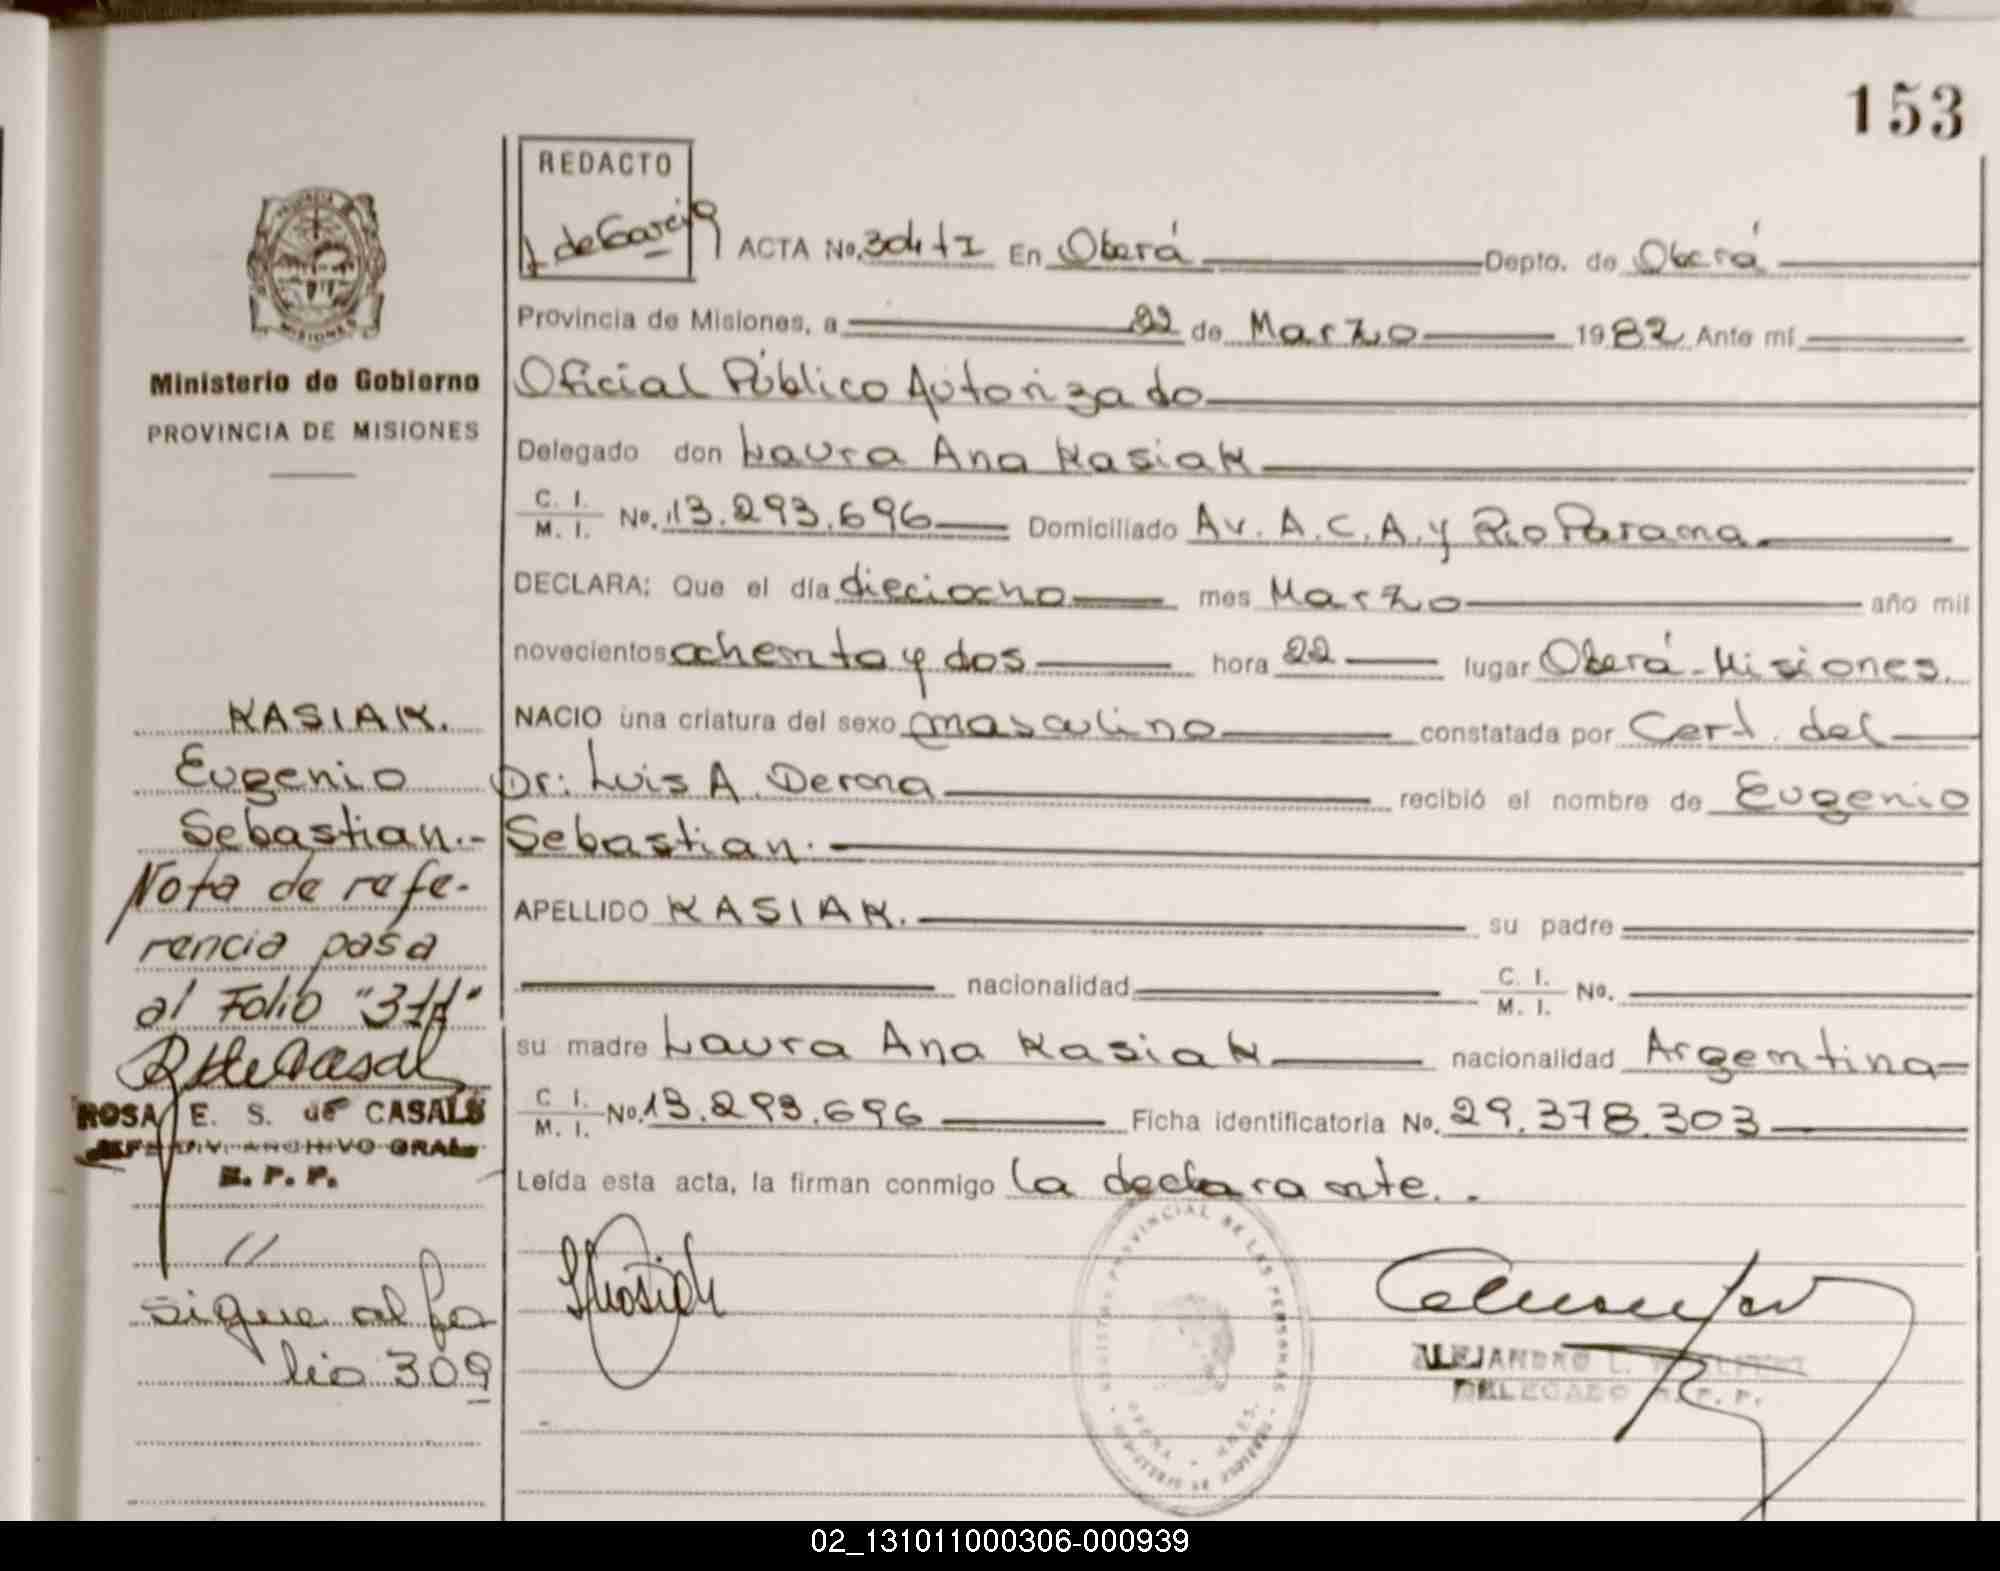 153
REDACTO
de Garcia
ACTA No. 304 tI En Oberá Depto. de Oberá
Provincia de Misiones, a 22 de Marzo 1982 Ante mí
Oficial Público Autorizado
Delegado don Laura Ana Kasiak
C. I. / M. I. No. 13.293.696 Domiciliado Av. A.C.A. y Rio Parana
DECLARA: Que el día dieciocho mes Marzo año mil
novecientos ochenta y dos hora 22 lugar Oberá-Misiones.
NACIO una criatura del sexo masculino constatada por Cert. del
Dr: Luis A. Derna recibió el nombre de Eugenio
Sebastian.
APELLIDO KASIAK. su padre
nacionalidad C. I. / M. I. No.
su madre Laura Ana Kasiak nacionalidad Argentina
C. I. / M. I. No. 13.293.696 Ficha identificatoria No. 29.378.303
Leída esta acta, la firman conmigo la declarante.
PROVINCIA MISIONES
Ministerio de Gobierno
PROVINCIA DE MISIONES
KASIAK.
Eugenio
Sebastian.-
Nota de refe-
rencia pasa
al Folio "311"
ROSA E. S. de CASALS
JEFE DIV. ARCHIVO GRAL.
R. P. P.
//
sigue al fo
lio 309
REGISTRO PROVINCIAL DE LAS PERSONAS
ALEJANDRO L.
DELEGADO R. P. P.
02_131011000306-000939